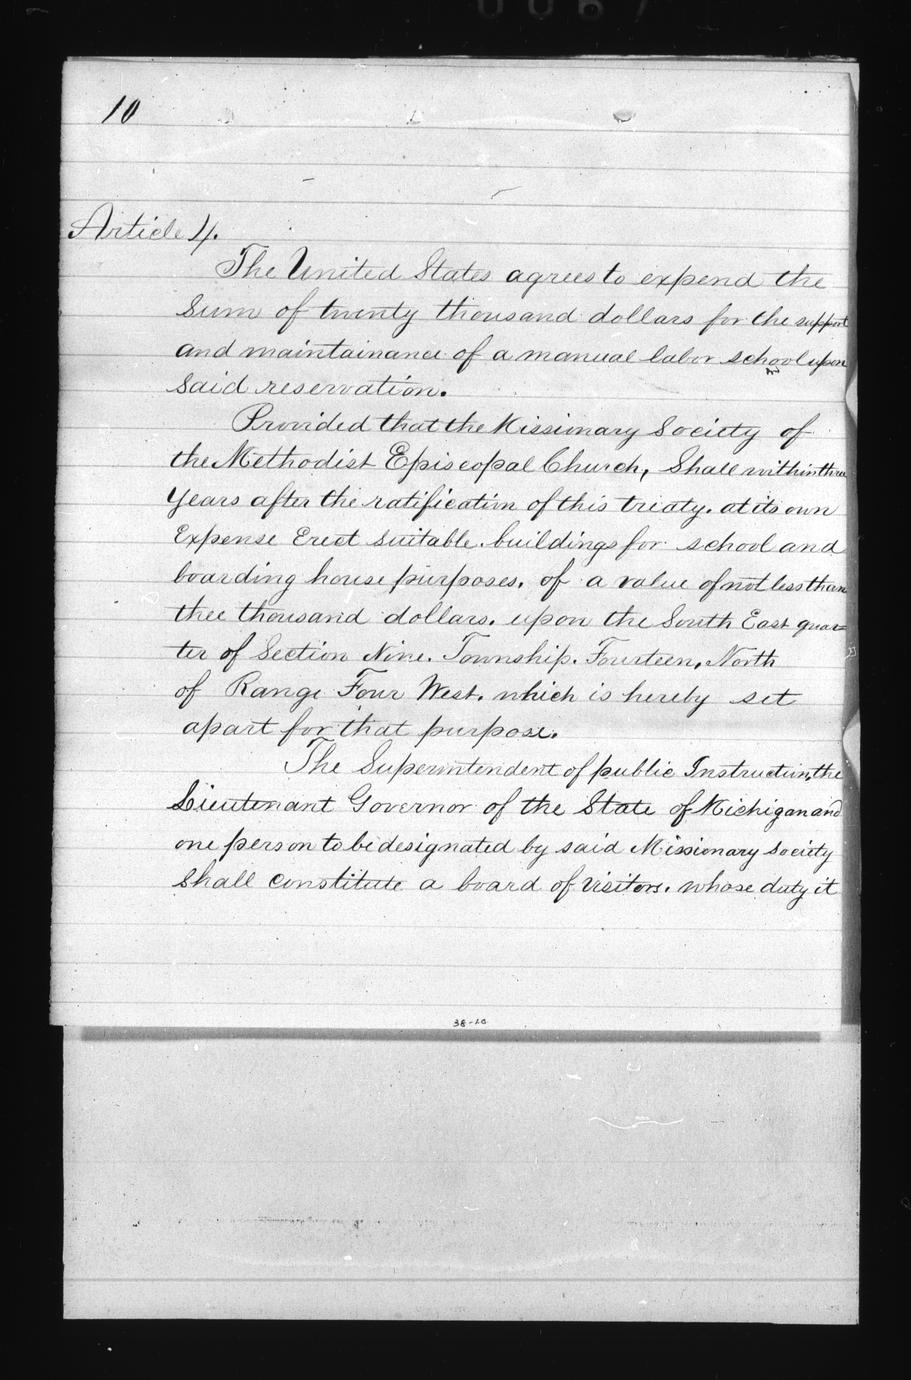 10
Article 4.
The United States agrees to expend the
Sum of twenty thousand dollars for the support
and maintainance of a manual labor school upon
said reservation.
Provided that the Missionary Society of
the Methodist Episcopal Church, Shall within three
years after the ratification of this treaty. at its own
Expense Erect suitable buildings for school and
boarding house purposes, of a value of not less than
thee thousand dollars. upon the South East quar=
ter of Section Nine. Township. Fourteen, North
of Range Four West. which is hereby set
apart for that purpose.
The Superintendent of public Instruction, the
Lieutenant Governor of the State of Michigan and
one person to be designated by said Missionary Society
Shall constitute a board of visitors. whose duty it
38-10